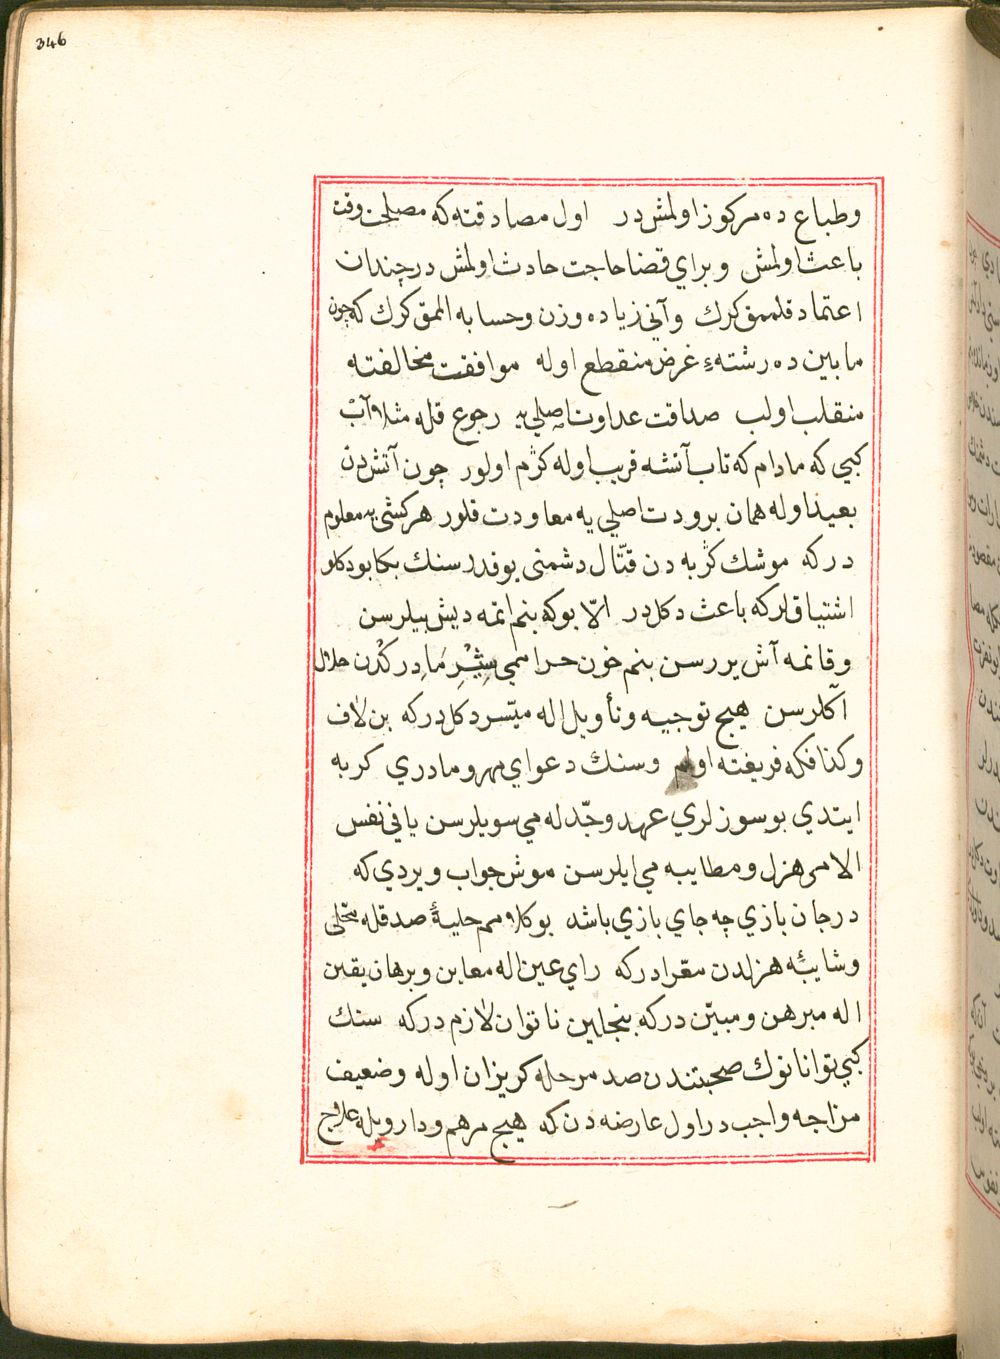 346
وطباع ده مركوز اولمش در اول مصادقته كه مصلحت وقت
باعث اولمش وبراي قضا حاجت حادث اولمش در چندان
اعتماد قلممق كرك وآني زياده وزن وحسابه الممق كرك كه چون
مابين ده رشتهء غرض منقطع اوله موافقت مخالفته
منقلب اولب صداقت عداوت اصلي يه رجوع قله مثلا آب
كبي كه مادام كه تاب آتشه قريب اوله كرم اولور چون آتش دن
بعيد اوله همان برودت اصلي يه معاودت قلور هر كشي يه معلوم
در كه موشك كربه دن قتّال دشمني يوقدر سنك بكا بو دكلو
اشتياقلر كه باعث دكلدر الّا بو كه بنم اتمه ديش بيلرسن
وقانمه آش يررسن بنم خون حراممي شير مادر كدن حلال
آكلرسن هيچ توجيه وتأويل اله ميسّر دكلدر كه بن لاف
وكذافكه فريفته اولم وسنك دعواي مهر ومادري كربه
ايتدي بو سوزلري عهد وجّد له مي سويلرسن يا في نفس
الامر هزل ومطايبه مي ايلرسن موش جواب ويردي كه
در جان بازي چه جاي بازي باشد بو كلامم حليهٔ صدقله محلى
وشايبهٔ هزلدن معّرا در كه راي عين اله معاين وبرهان يقين
اله مبرهن ومبيّن در كه بنجلين ناتوان لازم در كه سنك
كبي توانانوك صحبتندن صد مرحله كريزان اوله وضعيف
مزاجه واجب در اول عارضه دن كه هيچ مرهم ودارويله علاج